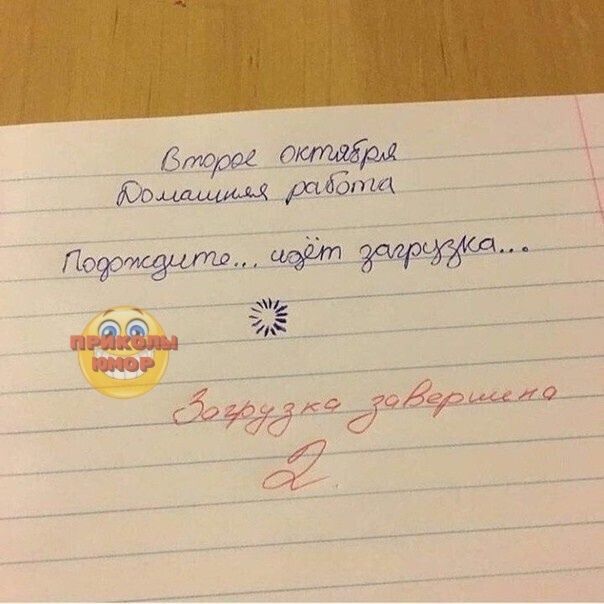 Второе октября
Домашняя работа
Подождите... идёт загрузка...
ПРИКОЛЫ
ЮМОР
Загрузка завершена
2.